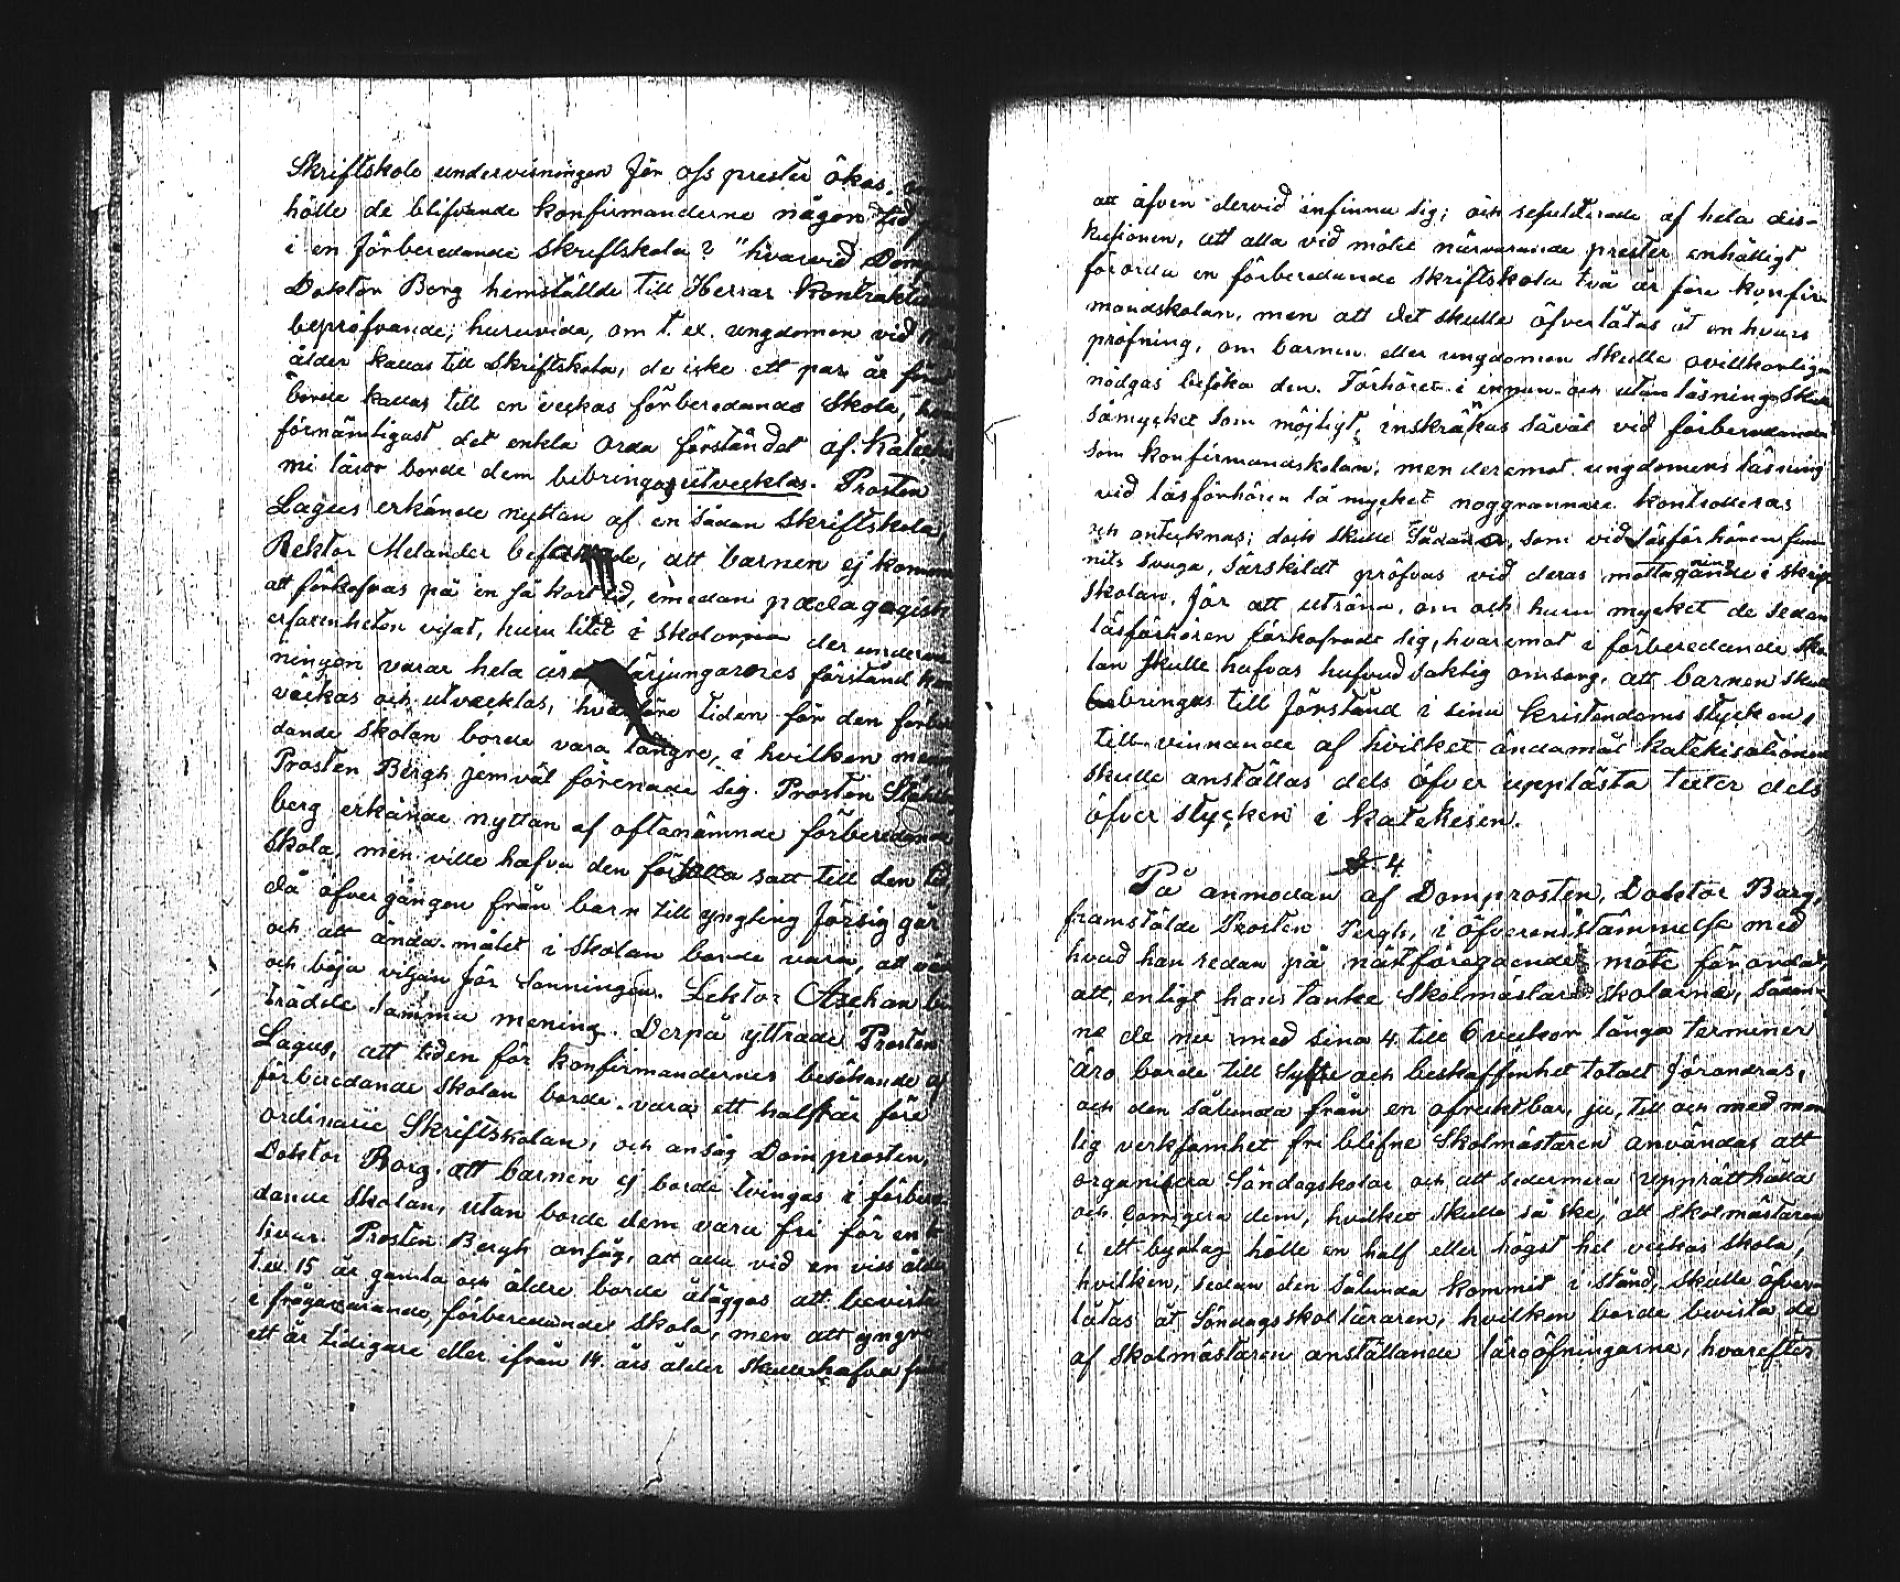 Skriftskole undervisningen för oss prester ökas,
hölle de blifvande konfirmanderne någon tid
i en förberedande skriftskola? "hvarvid Dom
Doktor Borg hemställde till Herrar Kontrakts
bepröfvande, huruvida, om t. ex. ungdomen vid
ålder kallas till Skriftskola, de icke ett par år före
borde kallas till en veckas förberedande Skola,
förnämligast det enkla orda förståndet af Kateches
mi läror borde dem bebringas utvecklas. Prosten
Lagus erkände nyttan af en sådan Skriftskola,
Rektor Melander befarade, att barnen ej komme
att förkofras på en så kort tid, emedan pædagogisk
erfarenheten visat, huru litet i skolorna der undervis
ningen varar hela året lärjungarnes förstånd kan
väckas och utvecklas, hvarföre tiden för den förbere
dande Skolan borde vara längre, i hvilken mening
Prosten Bergh jemväl förenade sig. Prosten Ståhl
berg erkände nyttan af oftanämnde förberedande
Skola, men ville hafva den satt till den tid
då öfvergången från barn till yngling försig går
och att ändamålet i Skolan borde vara, att
och böja viljan för Sanningen. Lektor Aschan bi
trädde samma mening. Derpå yttrade Prosten
Lagus, att tiden för konfirmandernes besökande af
förberedande Skolan borde vara ett halft år före
ordinarie Skriftskolan, och ansåg Domprosten,
Doktor Borg att barnen ej borde tvingas i förbere
dande Skolan, utan borde dem vara fri för en
hvar. Prosten Bergh ansåg, att alla vid en viss ålder
t.ex. 15 år gamla och äldre borde åläggas att bevista
i frågavarande, förberedande Skola, men att yngre
ett år tidigare eller ifrån 14 års ålder skulle hafva
att äfven dervid infinna sig; och resulterade af hela dis-
kusionen, att alla vid mötet närvarande prester enhälligt
förorda en förberedande Skriftskola två år före konfir-
mandskolan, men att det skulle öfverlåtas åt en hvars
pröfning, om barnen eller ungdomen skulle ovillkorligen
nödgas besöka den. Förhöret i innan och utanläsning skulle
såmycket som möjligt, inskränkas såväl vid förberedande
som konfirmandskolan, men deremot ungdomens läsning
vid läsförhören så mycket noggrannare kontrolleras
och antecknas; dock skulle sådane, som vid läsförhören fun
nits svaga, särskildt pröfvas vid deras mottagning i skrift
skolan, för att utröna, om och huru mycket de sedan
läsförhören förkofrade sig, hvaremot i förberedande Sko
lan skulle hafvas hufvudsaklig omsorg, att barnen skulle
bebringas till förstånd i sina kristendoms stycken,
till vinnande af hvilket ändamål katekisationen
skulle anställas dels öfver upplästa texter dels
öfver stycken i katekesen.
§. 4
På anmodan af Domprosten, Doktor Borg,
framstälde Prosten Bergh, i öfverensstämmelse med
hvad han redan på nästföregående möte förordat,
att, enligt hans tanke Skolmästare skolorna, sådan-
na de nu med sina 4 till 6 veckor långa terminer
äro borde till Syfte och beskaffenhet totalt förändras,
och den sålunda från en ofruktbar, ja, till och med men
lig verksamhet fri blifne Skolmästaren användas att
organisera Söndagskolor och att sedermera upprätthålla
och dem, hvilket skulle så ske, att Skolmästaren
i ett byalag hölle en half eller högst hel veckas Skola,
hvilken, sedan den sålunda kommit i stånd, skulle öfver-
låtas åt Söndagsskolläraren, hvilken borde bevista de
af Skolmästaren anställande läroöfningarne, hvarefter